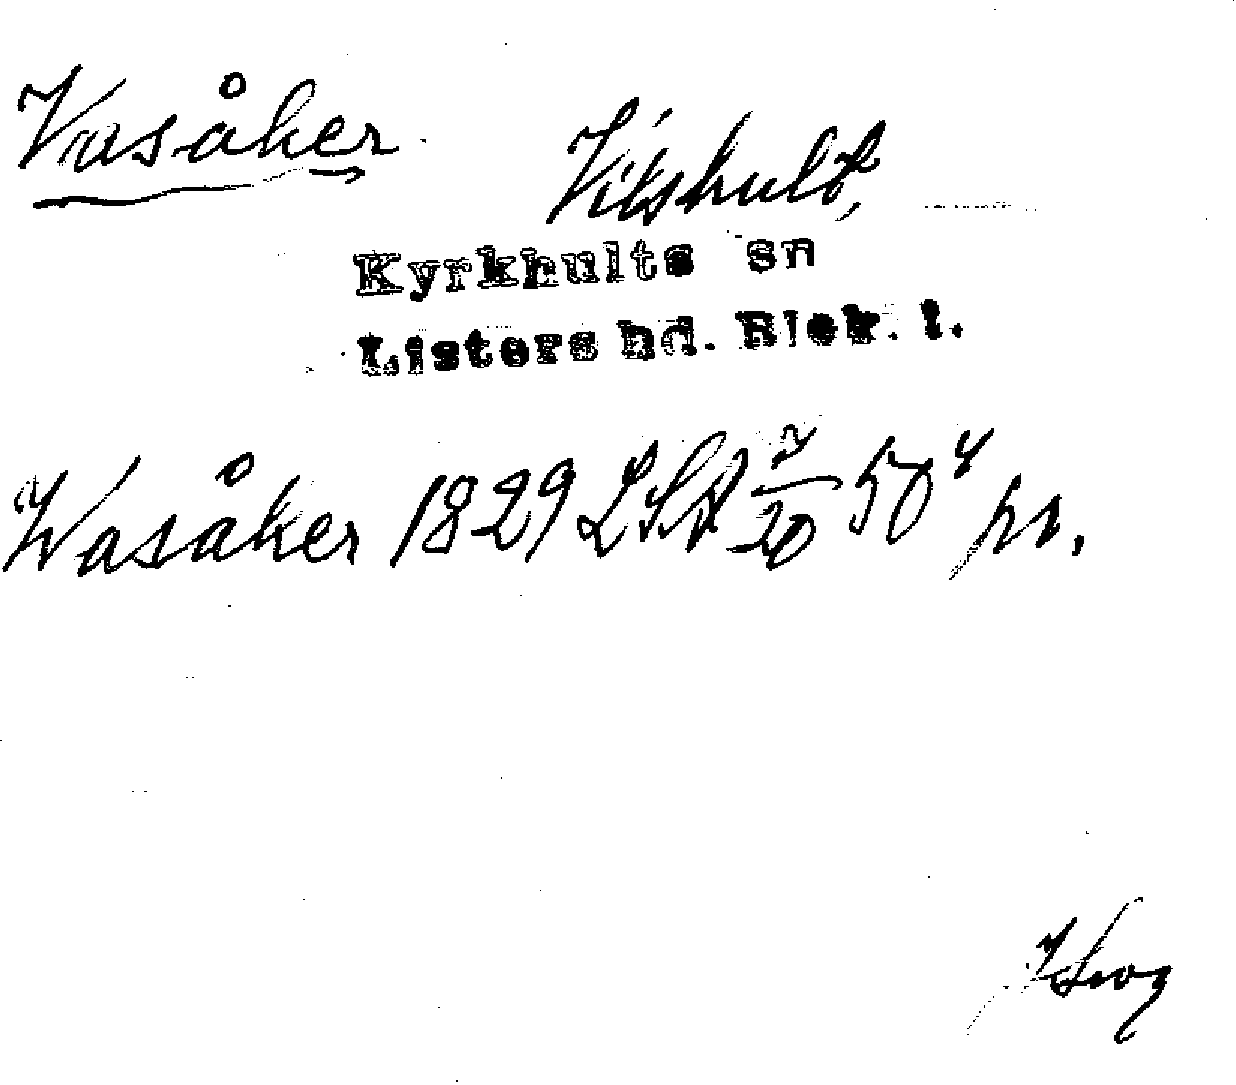 Vasåker Vilshult,
Kyrkhults sn
Listers hd. Blek. l.
Wasåker 1829 LSA 2/20 50 4 pr.